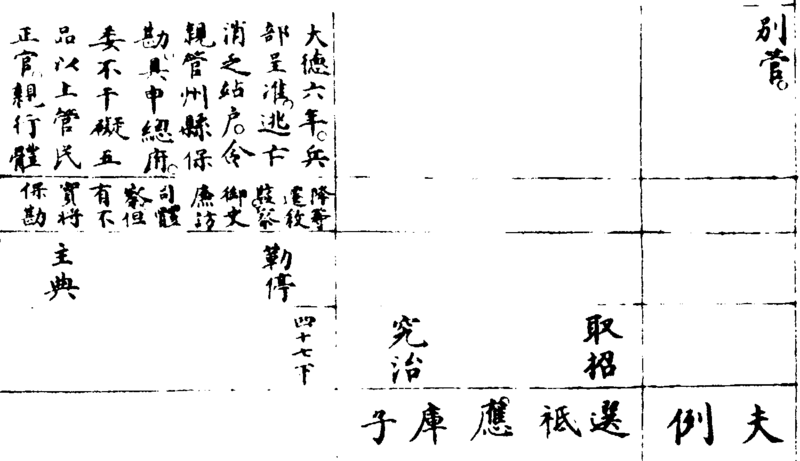 別管。
夫例
取招
究治
選祗應庫子
大德六年。兵
部呈准。逃亡
消乏站戶。令
親管州縣保
勘。具申總府。
委不干礙五
品以上管民
正官。親行體
降等
遷敘
監察
御史
廉訪
司體
察但
有不
實將
保勘
勒停
主典
四十七下